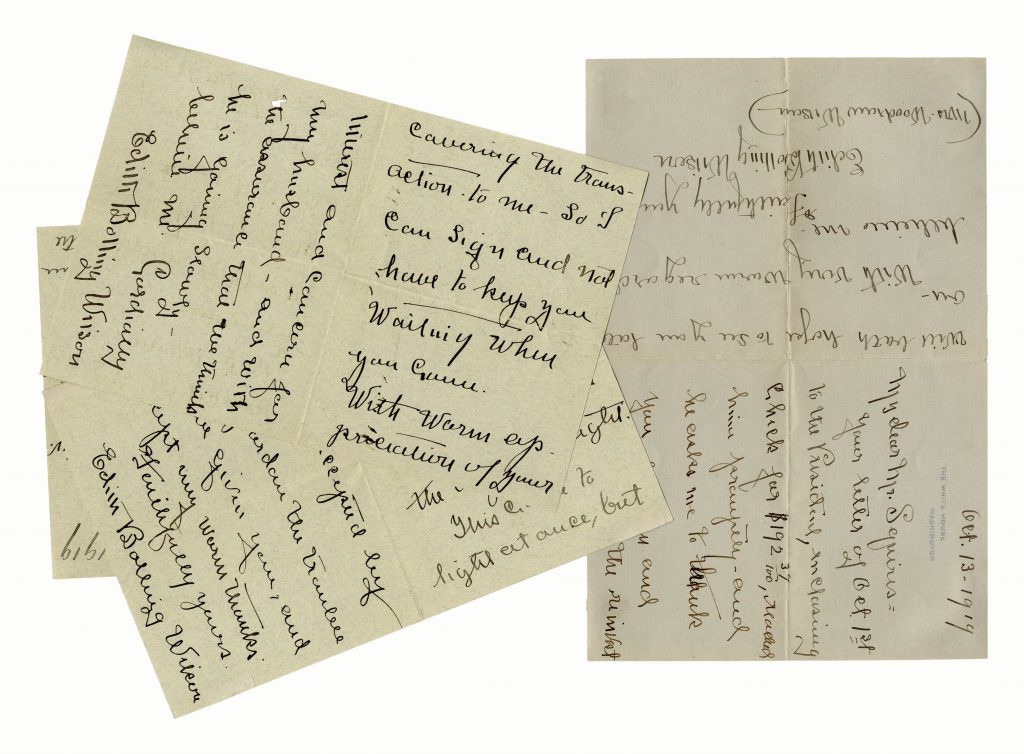 Covering the trans-
action to me - So I
can sign and not
have to keep you
Waiting when
you come.
With warm ap-
preciation of your
interest and concern for
my husband - and with
the assurance that we think
he is gaining slowly -
believe me.
Cordially
Edith Bolling Wilson
the
This
to
light at once, but
ight.
accepted by
ardon the trouble
given you, and
ept my warm thanks.
Faithfully yours.
Edith Bolling Wilson
1919
Oct. 13 - 1919
THE WHITE HOUSE
WASHINGTON
My dear Mr. Squires -
Your letter of Oct 1st
to the President, enclosing
check for $192 37/100, reached
him promptly - and
he asks me to thank
you
and
the
Will both hope to see you
With very warm regard
believe me
Faithfully you
Edith Bolling Wilson
(Mrs. Woodrow Wilson)